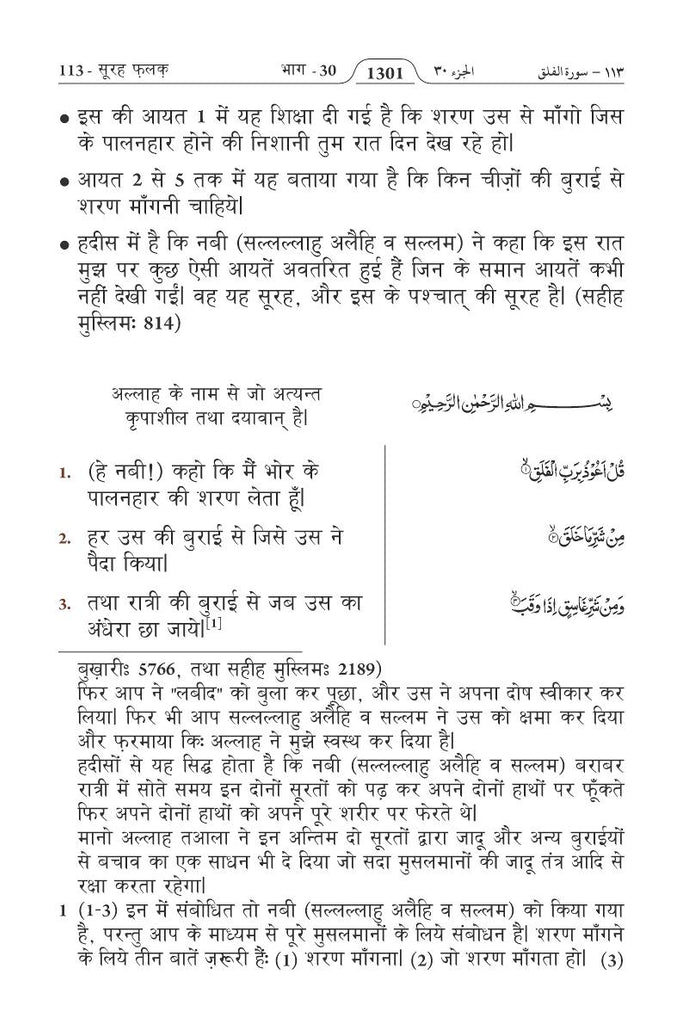 113 - सूरह फ़लक़ भाग - 30 1301 الجزء ٣٠ ١١٣ – سورة الفلق
• इस की आयत 1 में यह शिक्षा दी गई है कि शरण उस से माँगो जिस
के पालनहार होने की निशानी तुम रात दिन देख रहे हो।
• आयत 2 से 5 तक में यह बताया गया है कि किन चीज़ों की बुराई से
शरण माँगनी चाहिये।
• हदीस में है कि नबी (सल्लल्लाहु अलैहि व सल्लम) ने कहा कि इस रात
मुझ पर कुछ ऐसी आयतें अवतरित हुई हैं जिन के समान आयतें कभी
नहीं देखी गईं। वह यह सूरह, और इस के पश्चात् की सूरह है। (सहीह
मुस्लिमः 814)
अल्लाह के नाम से जो अत्यन्त
कृपाशील तथा दयावान् है।
بِسْمِ اللهِ الرَّحْمٰنِ الرَّحِيْمِ
1. (हे नबी!) कहो कि मैं भोर के
पालनहार की शरण लेता हूँ।
قُلْ اَعُوْذُ بِرَبِّ الْفَلَقِ ۙ١
2. हर उस की बुराई से जिसे उस ने
पैदा किया।
مِنْ شَرِّ مَا خَلَقَ ۙ٢
3. तथा रात्री की बुराई से जब उस का
अंधेरा छा जाये।[1]
وَمِنْ شَرِّ غَاسِقٍ اِذَا وَقَبَ ۙ٣
बुख़ारीः 5766, तथा सहीह मुस्लिमः 2189)
फिर आप ने "लबीद" को बुला कर पूछा, और उस ने अपना दोष स्वीकार कर
लिया। फिर भी आप सल्लल्लाहु अलैहि व सल्लम ने उस को क्षमा कर दिया
और फ़रमाया किः अल्लाह ने मुझे स्वस्थ कर दिया है।
हदीसों से यह सिद्ध होता है कि नबी (सल्लल्लाहु अलैहि व सल्लम) बराबर
रात्री में सोते समय इन दोनों सूरतों को पढ़ कर अपने दोनों हाथों पर फूँकते
फिर अपने दोनों हाथों को अपने पूरे शरीर पर फेरते थे।
मानो अल्लाह तआला ने इन अन्तिम दो सूरतों द्वारा जादू और अन्य बुराईयों
से बचाव का एक साधन भी दे दिया जो सदा मुसलमानों की जादू तंत्र आदि से
रक्षा करता रहेगा।
1 (1-3) इन में संबोधित तो नबी (सल्लल्लाहु अलैहि व सल्लम) को किया गया
है, परन्तु आप के माध्यम से पूरे मुसलमानों के लिये संबोधन है। शरण माँगने
के लिये तीन बातें ज़रूरी हैंः (1) शरण माँगना। (2) जो शरण माँगता हो। (3)